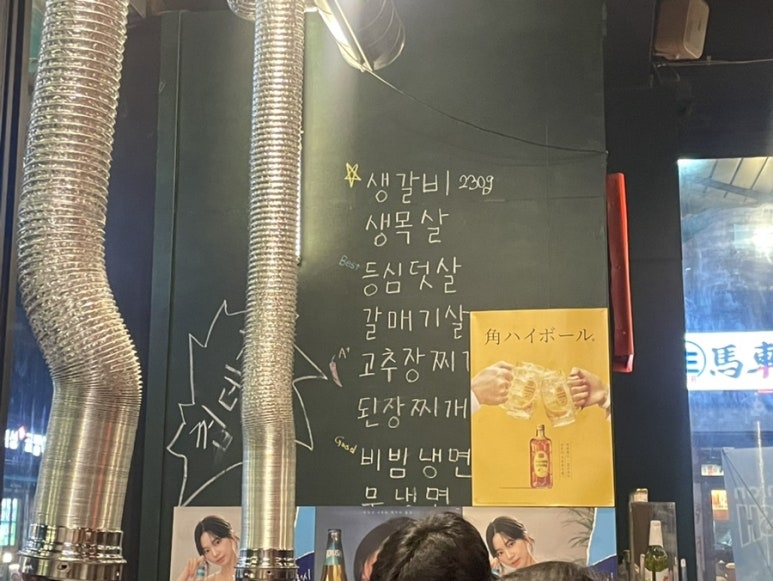 생갈비 230g
생목살
Best 등심덧살
갈매기살
A+ 고추장찌
된장찌개
Good 비빔냉면
물냉면
껍데
角ハイボール。
馬車